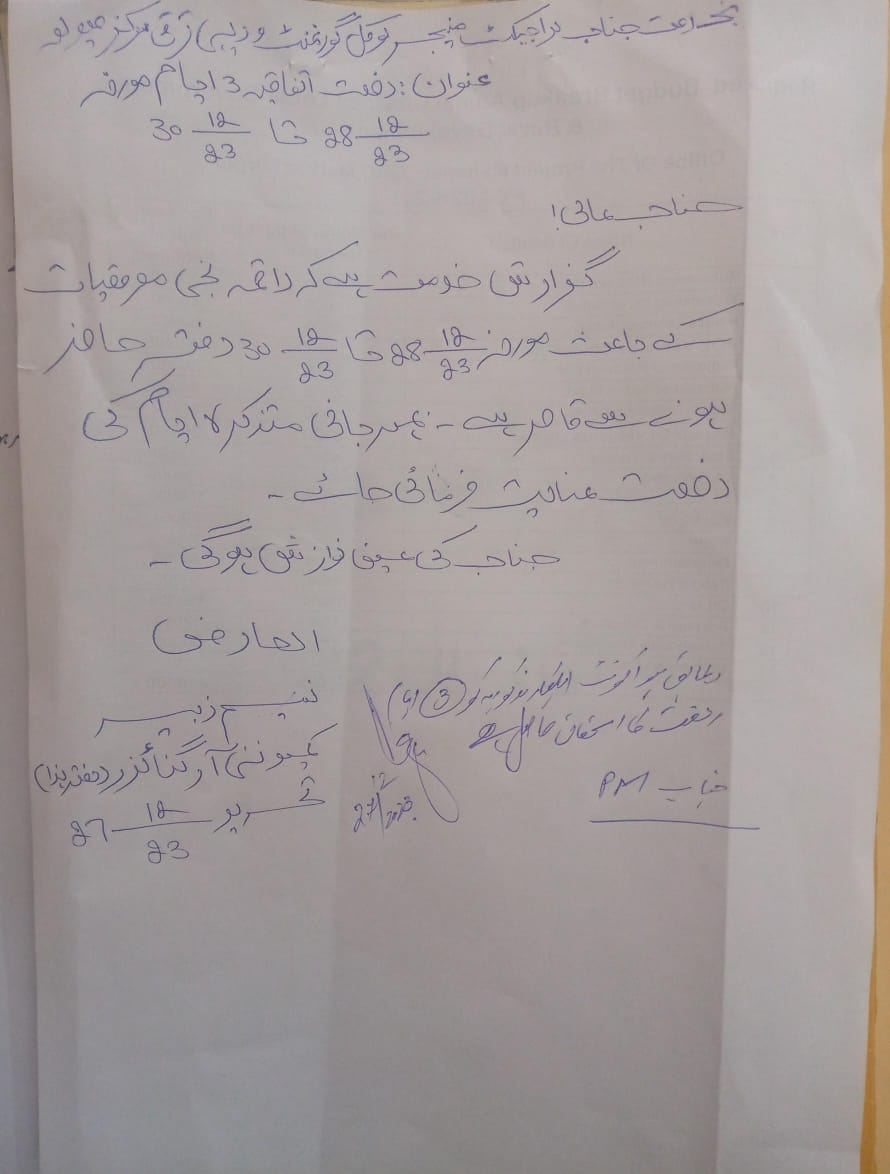 بخدمت جناب پراجیکٹ منیجر لوکل گورنمنٹ و دیہی ترقی مرکز
عنوان: رخصت اتفاقیہ 3 ایام مورخہ
28 12/23 تا 30 12/23
جناب عالی!
گزارش خدمت ہے کہ راقمہ نجی مصروفیات
کے باعث مورخہ 28 12/23 تا 30 12/23 دفتر حاضر
ہونے سے قاصر ہے - بمہربانی متذکرہ ایام کی
رخصت عنایت فرمائی جائے -
جناب کی عین نوازش ہوگی -
العارض
زبیر
کمیونٹی آرگنائزر (دفتر ہذا)
تحریر 27 12/23
بمطابق اکونٹ اہلکار مذکوریہ کو (3) یوم
رخصت کا استحقاق حاصل ہے
27/12/2023
جناب PM